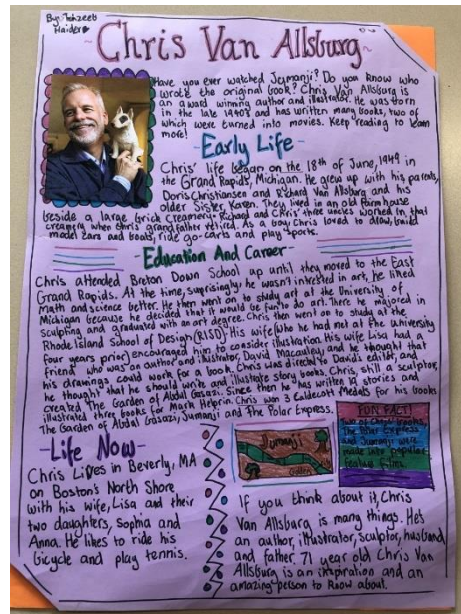 By: Tehzeeb
Haider
~Chris Van Allsburg~
Have you ever watched Jumanji? Do you know who
wrote the original book? Chris Van Allsburg is
an award winning author and illustrator. He was born
in the late 1940s and has written many books, two of
which were turned into movies. Keep reading to learn
more!
-Early Life-
Chris' life began on the 18th of June, 1949 in
the Grand Rapids, Michigan. He grew up with his parents,
Doris Christiansen and Richard Van Allsburg and his
older Sister, Karen. They lived in an old farm house
beside a large brick creamery. Richard and Chris' three uncles worked in that
creamery when Chris' grandfather retired. As a boy Chris loved to draw, build
model cars and boats, ride go-carts and play sports.
-Education And Career-
Chris attended Breton Down School up until they moved to the East
Grand Rapids. At the time, surprisingly he wasn't interested in art, he liked
Math and science better. He then went on to study art at the University of
Michigan because he decided that it would be fun to do art. There he majored in
sculpting and graduated with an art degree. Chris then went on to study at the
Rhode Island School of Design (RISD). His wife (who he had met at the university
four years prior) encouraged him to consider illustration. His wife Lisa had a
friend who was an author and illustrator, David Macauley and he thought that
his drawings could work for a book. Chris was directed to David's editor, and
he thought that he should write and illustrate story books. Chris, still a sculptor,
created The Garden of Abdul Gasazi. Since then he has written 19 stories and
illustrated three books for Mark Helprin. Chris won 3 Caldecott Medals for his books
The Garden of Abdul Gasazi, Jumanji and The Polar Express.
-Life Now-
Chris Lives in Beverly, MA
on Boston's North Shore
with his wife, Lisa and their
two daughters, Sophia and
Anna. He likes to ride his
bicycle and play tennis.
Jumanji
FUN FACT!
Two of Chris' books,
The Polar Express
and Jumanji were
made into popular
feature films.
If you think about it, Chris
Van Allsburg is many things. He's
an author, illustrator, sculptor, husband
and father. 71 year old Chris Van
Allsburg is an inspiration and an
amazing person to know about.